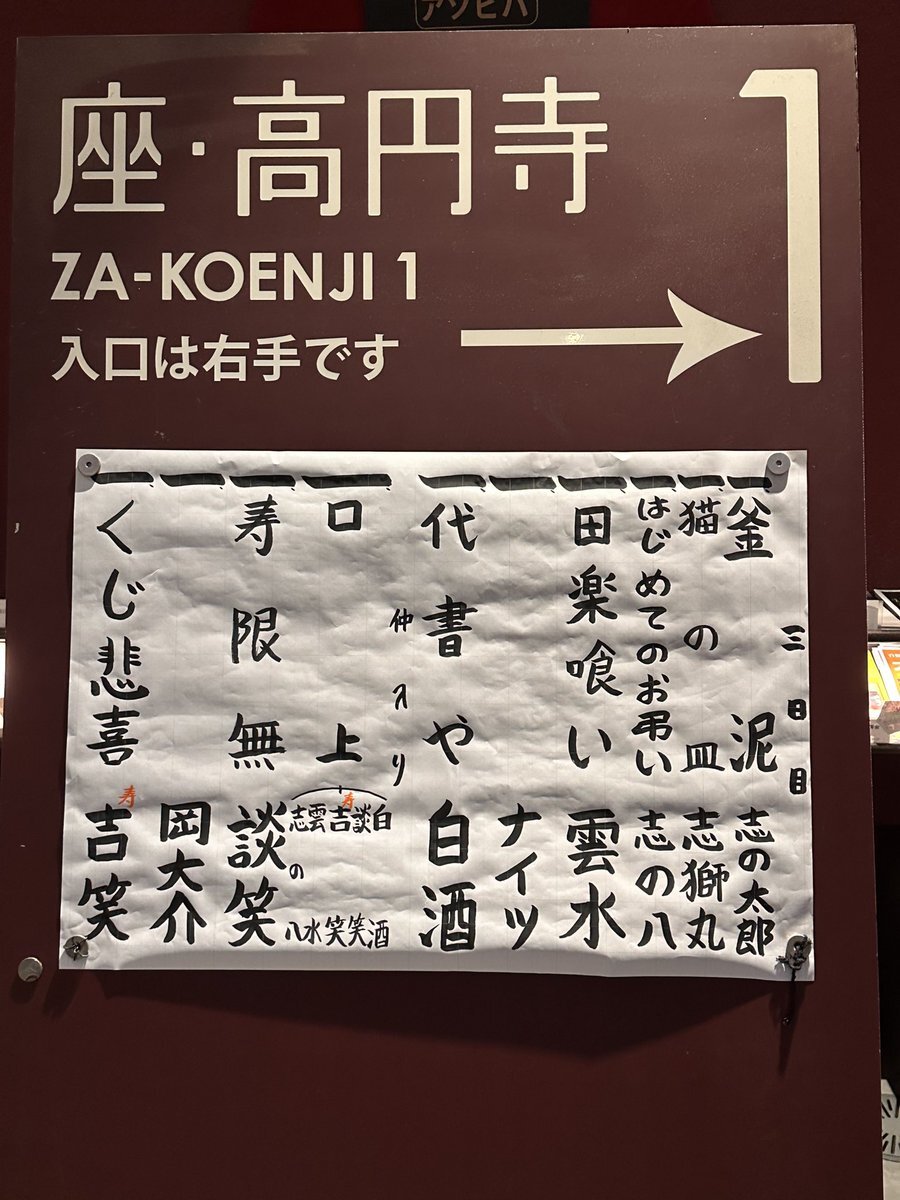 座・高円寺
1
ZA-KOENJI 1
入口は右手です
三日目
一、釜泥 志の太郎
一、猫の皿 志獅丸
一、はじめてのお弔い 志の八
一、田楽喰い 雲水
一、ナイツ
一、代書や 白酒
仲入り
一、口上
白酒
談笑
寿 吉笑
雲水
志の八
一、寿限無 談笑
一、岡大介
一、くじ悲喜 寿 吉笑